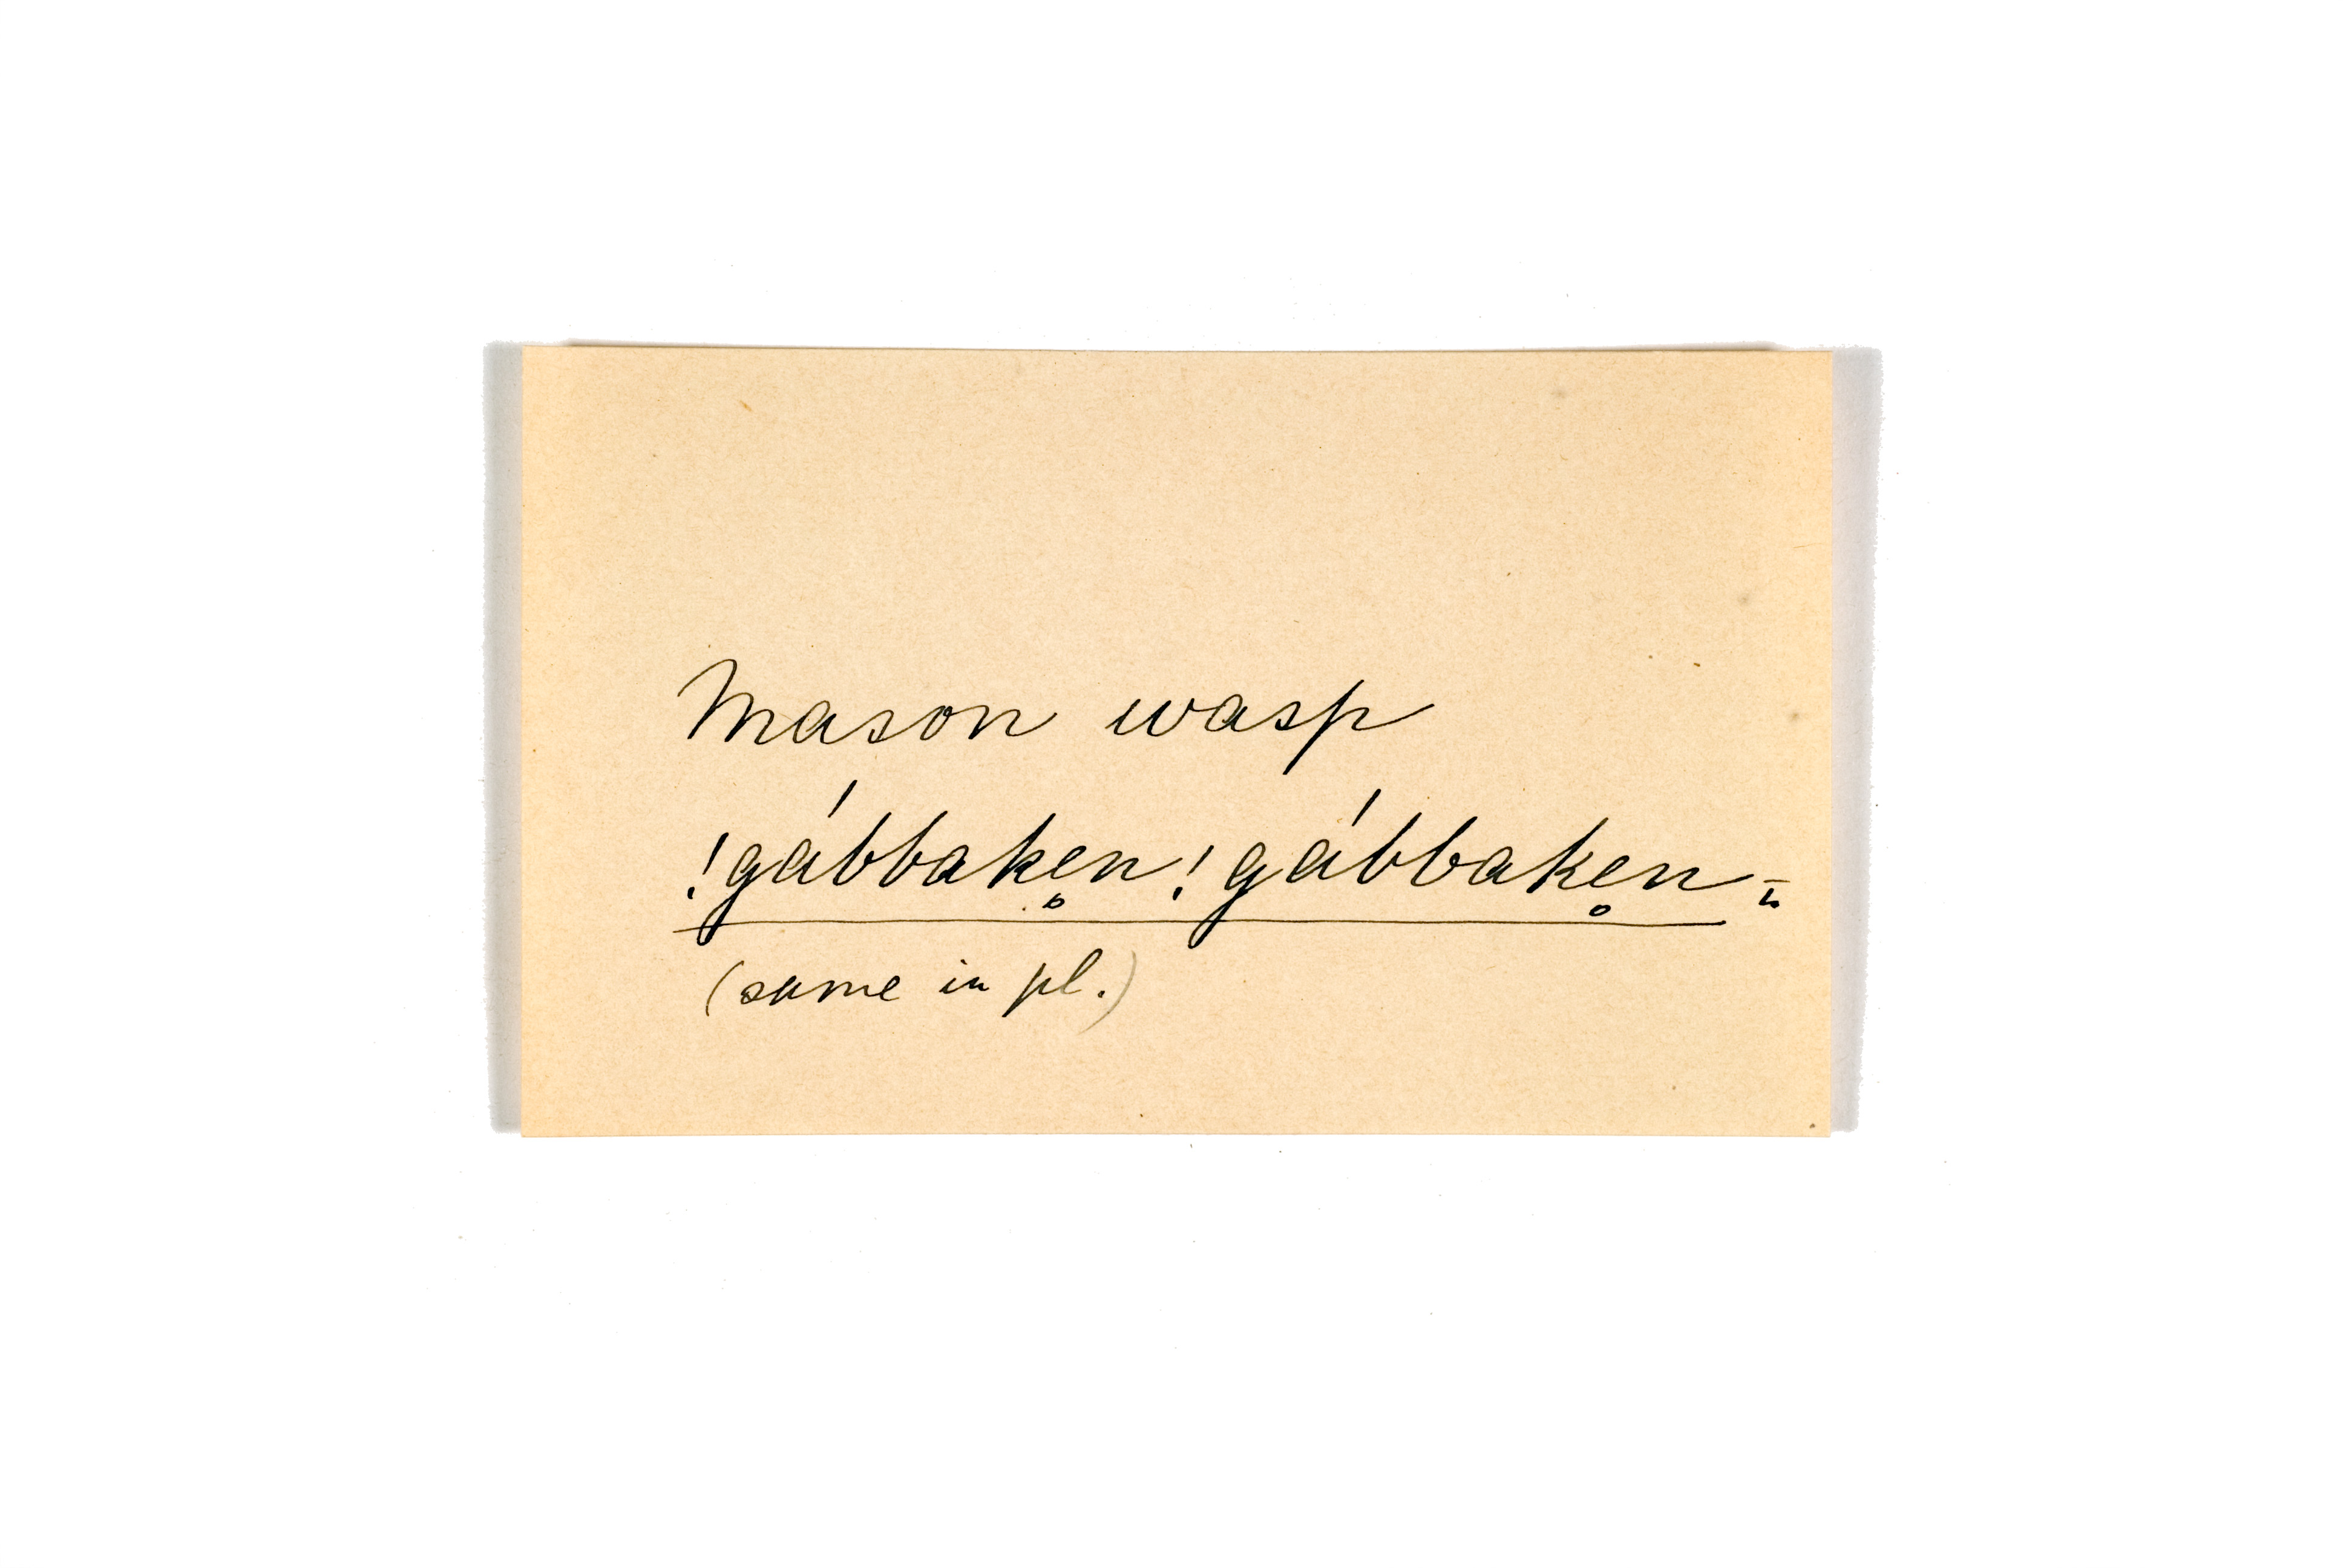 Mason wasp
!gábbakḙn!gábbakḙn-
(same in pl.)